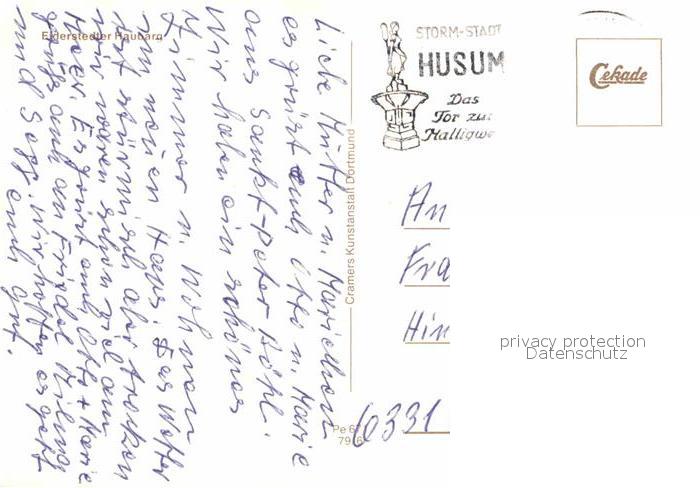 Eiderstedter Haubarg
Liebe Mutter u. Marielhou
es grüßt Euch Otto u. Marie
aus Sankt-Peter Böhl.
Wir haben ein schönes
Zimmer u. Wohnen
im neuen Haus. Das Wetter
ist stürmisch aber trocken
wir waren schon viel am
Meer. Es grüßt euch Otto + Marie
grüß auch an Friedel
und Sepp. Wir hoffen es geht
euch gut.
Cramers Kunstanstalt Dortmund
Pe 67
STORM-STADT
HUSUM
Das
Tor zur
Halligwe
Cekade
An
Fra
Hin
6331
privacy protection
Datenschutz